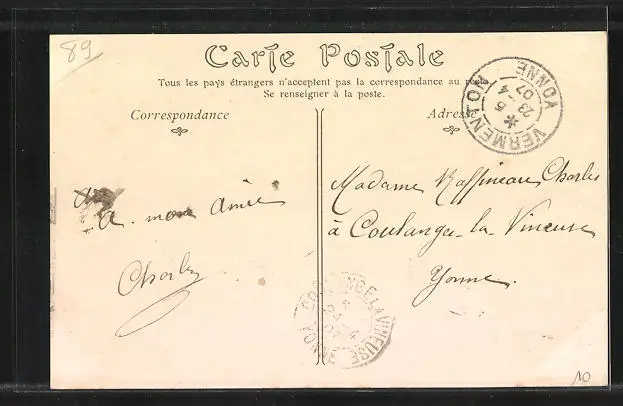 89
Carte Postale
Tous les pays étrangers n'acceptent pas la correspondance au
Se renseigner à la poste.
Correspondance
Adresse
VERMENTON YONNE
* 5
23 - 4
07
à mon Amie
Charles
Madame Raffineau Charles
à Coulanges-la-Vineuse
Yonne.
COULANGE LA VINEUSE
YONNE
10